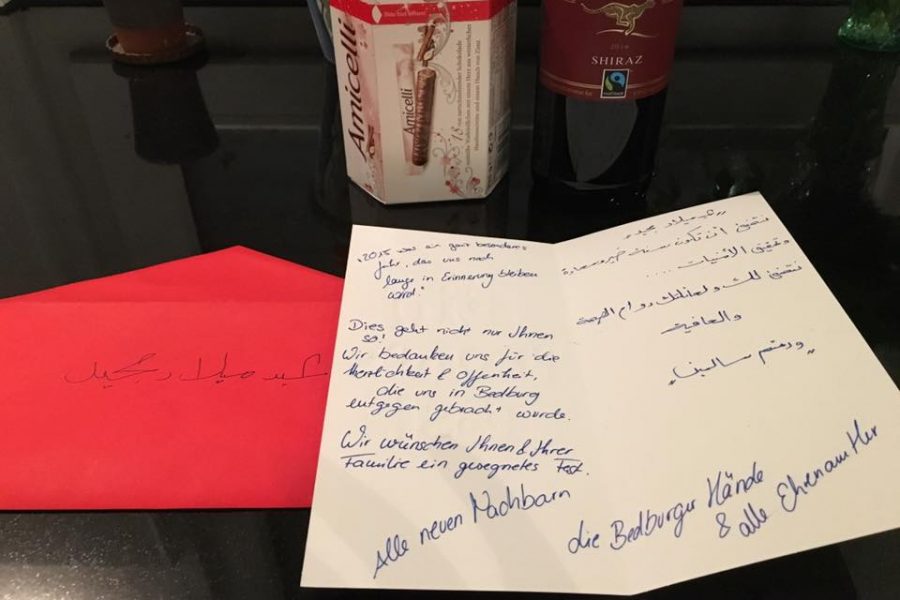 Amicelli
Amicelli
18
SHIRAZ
FAIRTRADE
عيد ميلاد مجيد
„2015 war ein ganz besonderes
Jahr, das uns noch
lange in Erinnerung bleiben
wird“
Dies geht nicht nur Ihnen
so!
Wir bedanken uns für die
Herzlichkeit & Offenheit,
die uns in Bedburg
entgegen gebracht wurde.
Wir wünschen Ihnen & Ihrer
Familie ein gesegnetes Fest.
Alle neuen Nachbarn
„عيد ميلاد مجيد“
نتمنى أن تكون سنة خير وسعادة
وتحقيق الأمنيات ....
نتمنى لك ولعائلتك دوام الصحة
والعافية
„ودمتم سالمين“
die Bedburger Hände
& alle Ehrenamtler